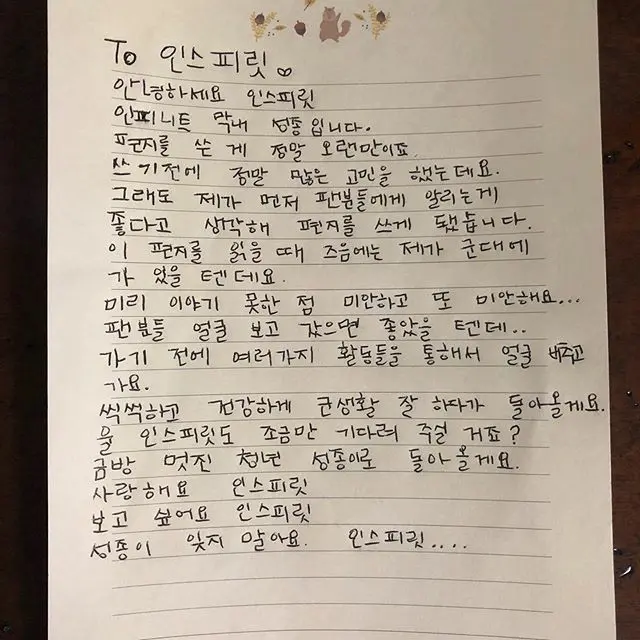 To 인스피릿♡
안녕하세요 인스피릿
인피니트 막내 성종입니다.
편지를 쓴 게 정말 오랜만이죠
쓰기전에 정말 많은 고민을 했는데요.
그래도 제가 먼저 팬분들에게 알리는게
좋다고 생각해 편지를 쓰게 됐습니다.
이 편지를 읽을 때 즈음에는 제가 군대에
가 있을 텐데요.
미리 이야기 못한 점 미안하고 또 미안해요...
팬분들 얼굴 보고 갔으면 좋았을 텐데..
가기 전에 여러가지 활동들을 통해서 얼굴 비추고
가요.
씩씩하고 건강하게 군생활 잘 하다가 돌아올게요.
울 인스피릿도 조금만 기다려 주실 거죠?
금방 멋진 청년 성종이로 돌아올게요.
사랑해요 인스피릿
보고 싶어요 인스피릿
성종이 잊지 말아요. 인스피릿....